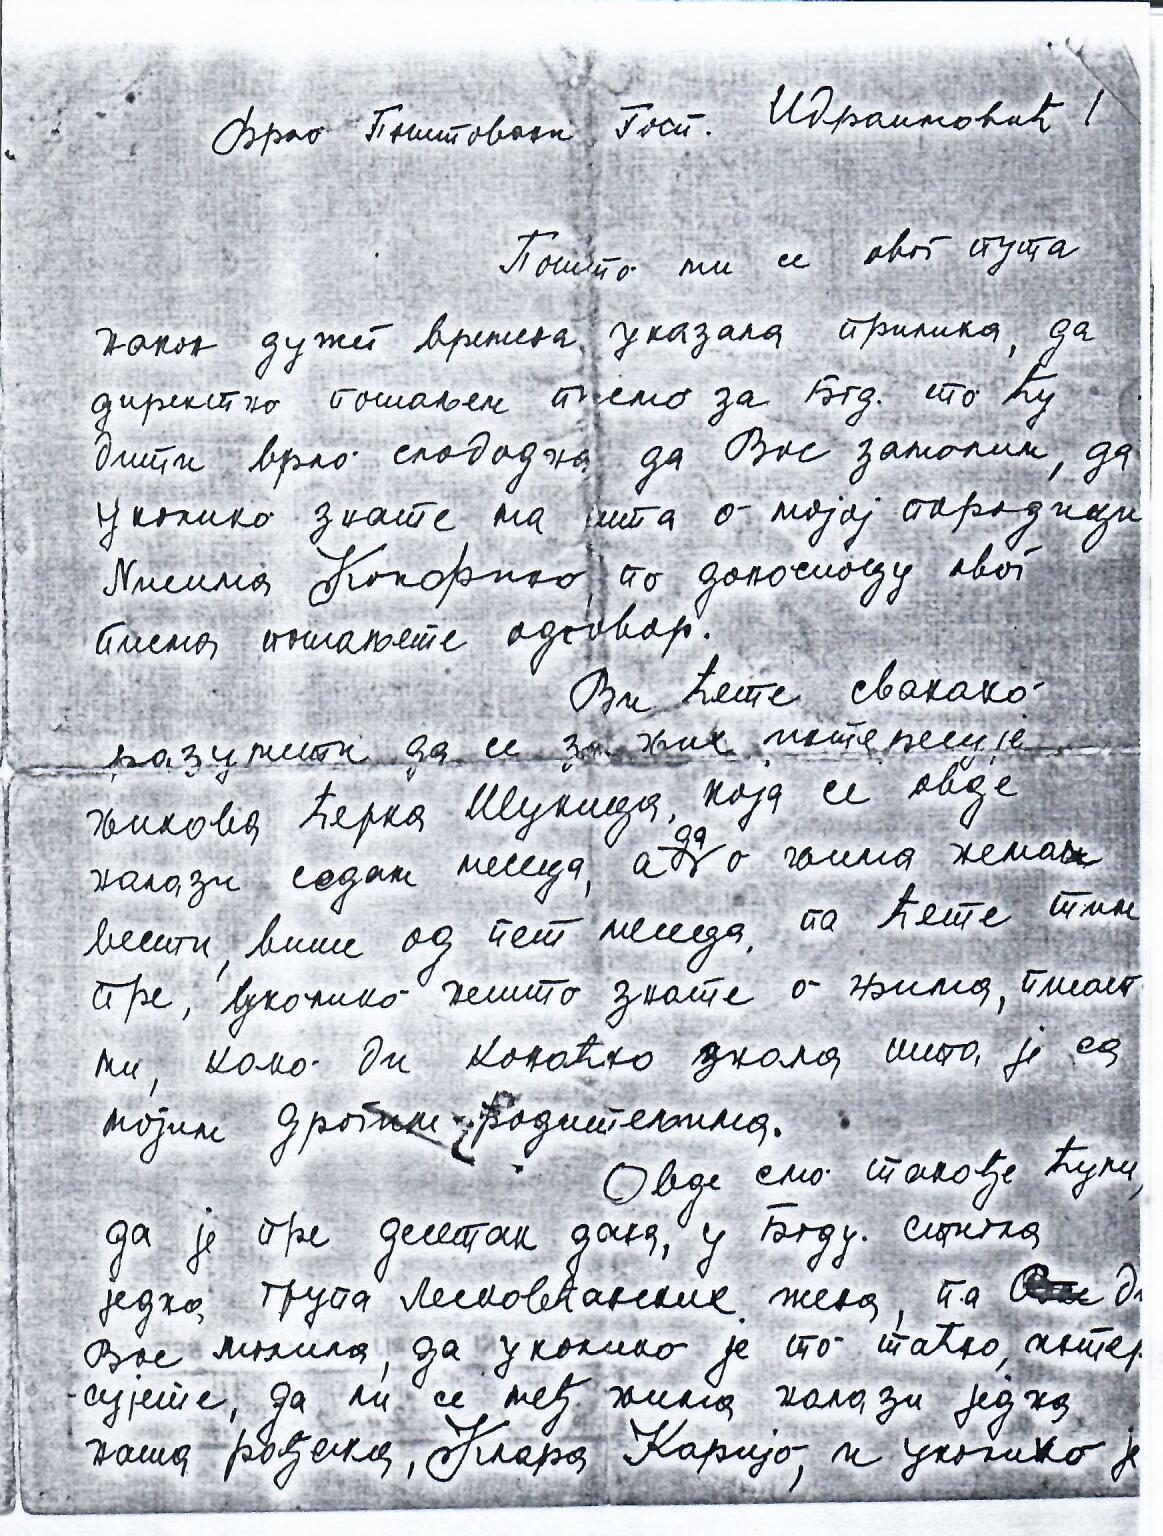 Врло Поштовани Госп. Ибраимовић!
Пошто ми се овог пута
након дужег времена указала прилика, да
директно пошаљем писмо за Бгд. то ћу
бити врло слободна да Вас замолим, да
уколико знате ма шта о мојој породици
Нисима Конфино, по доносиоцу овог
писма пошаљете одговор.
Ви ћете свакако
разумети да се за њих интересује
њихова ћерка Шукица, која се овде
налази седам месеца, а да о њима немам
вести, више од пет месеца, па ћете тим
пре, уколико нешто знате о њима, писат
ми, како би коначно знала шта је са
мојим драгим родитељима.
Овде смо такође чули,
да је пре десетак дана, у Бгду. стигла
једна група Лесковачких жена, па би
Вас молила, да уколико је то тачно, интер
сујете, да ли се међ њима налази једна
наша рођака, Клара Каријо, и уколико је